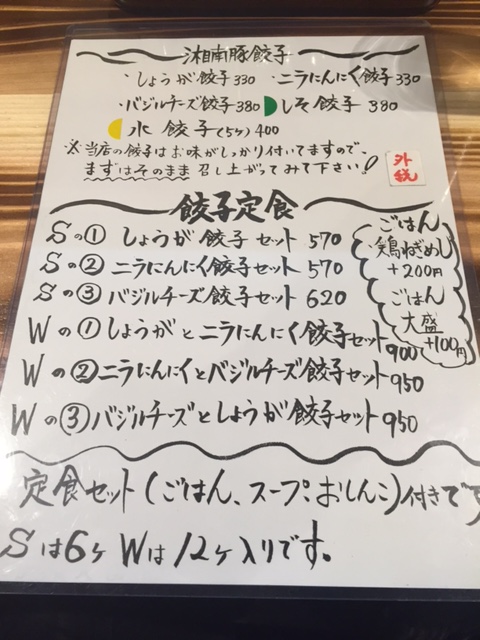 湘南豚餃子
・しょうが餃子330 ・ニラにんにく餃子330
・バジルチーズ餃子380 しそ餃子 380
水餃子(5ケ)400
※当店の餃子はお味がしっかり付いてますので、
まずはそのまま召し上がってみて下さい!
外税
餃子定食
Sの① しょうが餃子セット 570
Sの② ニラにんにく餃子セット 570
Sの③ バジルチーズ餃子セット 620
Wの① しょうがとニラにんにく餃子セット 900
Wの② ニラにんにくとバジルチーズ餃子セット 950
Wの③ バジルチーズとしょうが餃子セット 950
ごはん
鶏ねぎめし
+200円
ごはん
大盛
+100円
定食セット(ごはん、スープ、おしんこ)付きです
Sは6ケ Wは12ケ入りです。